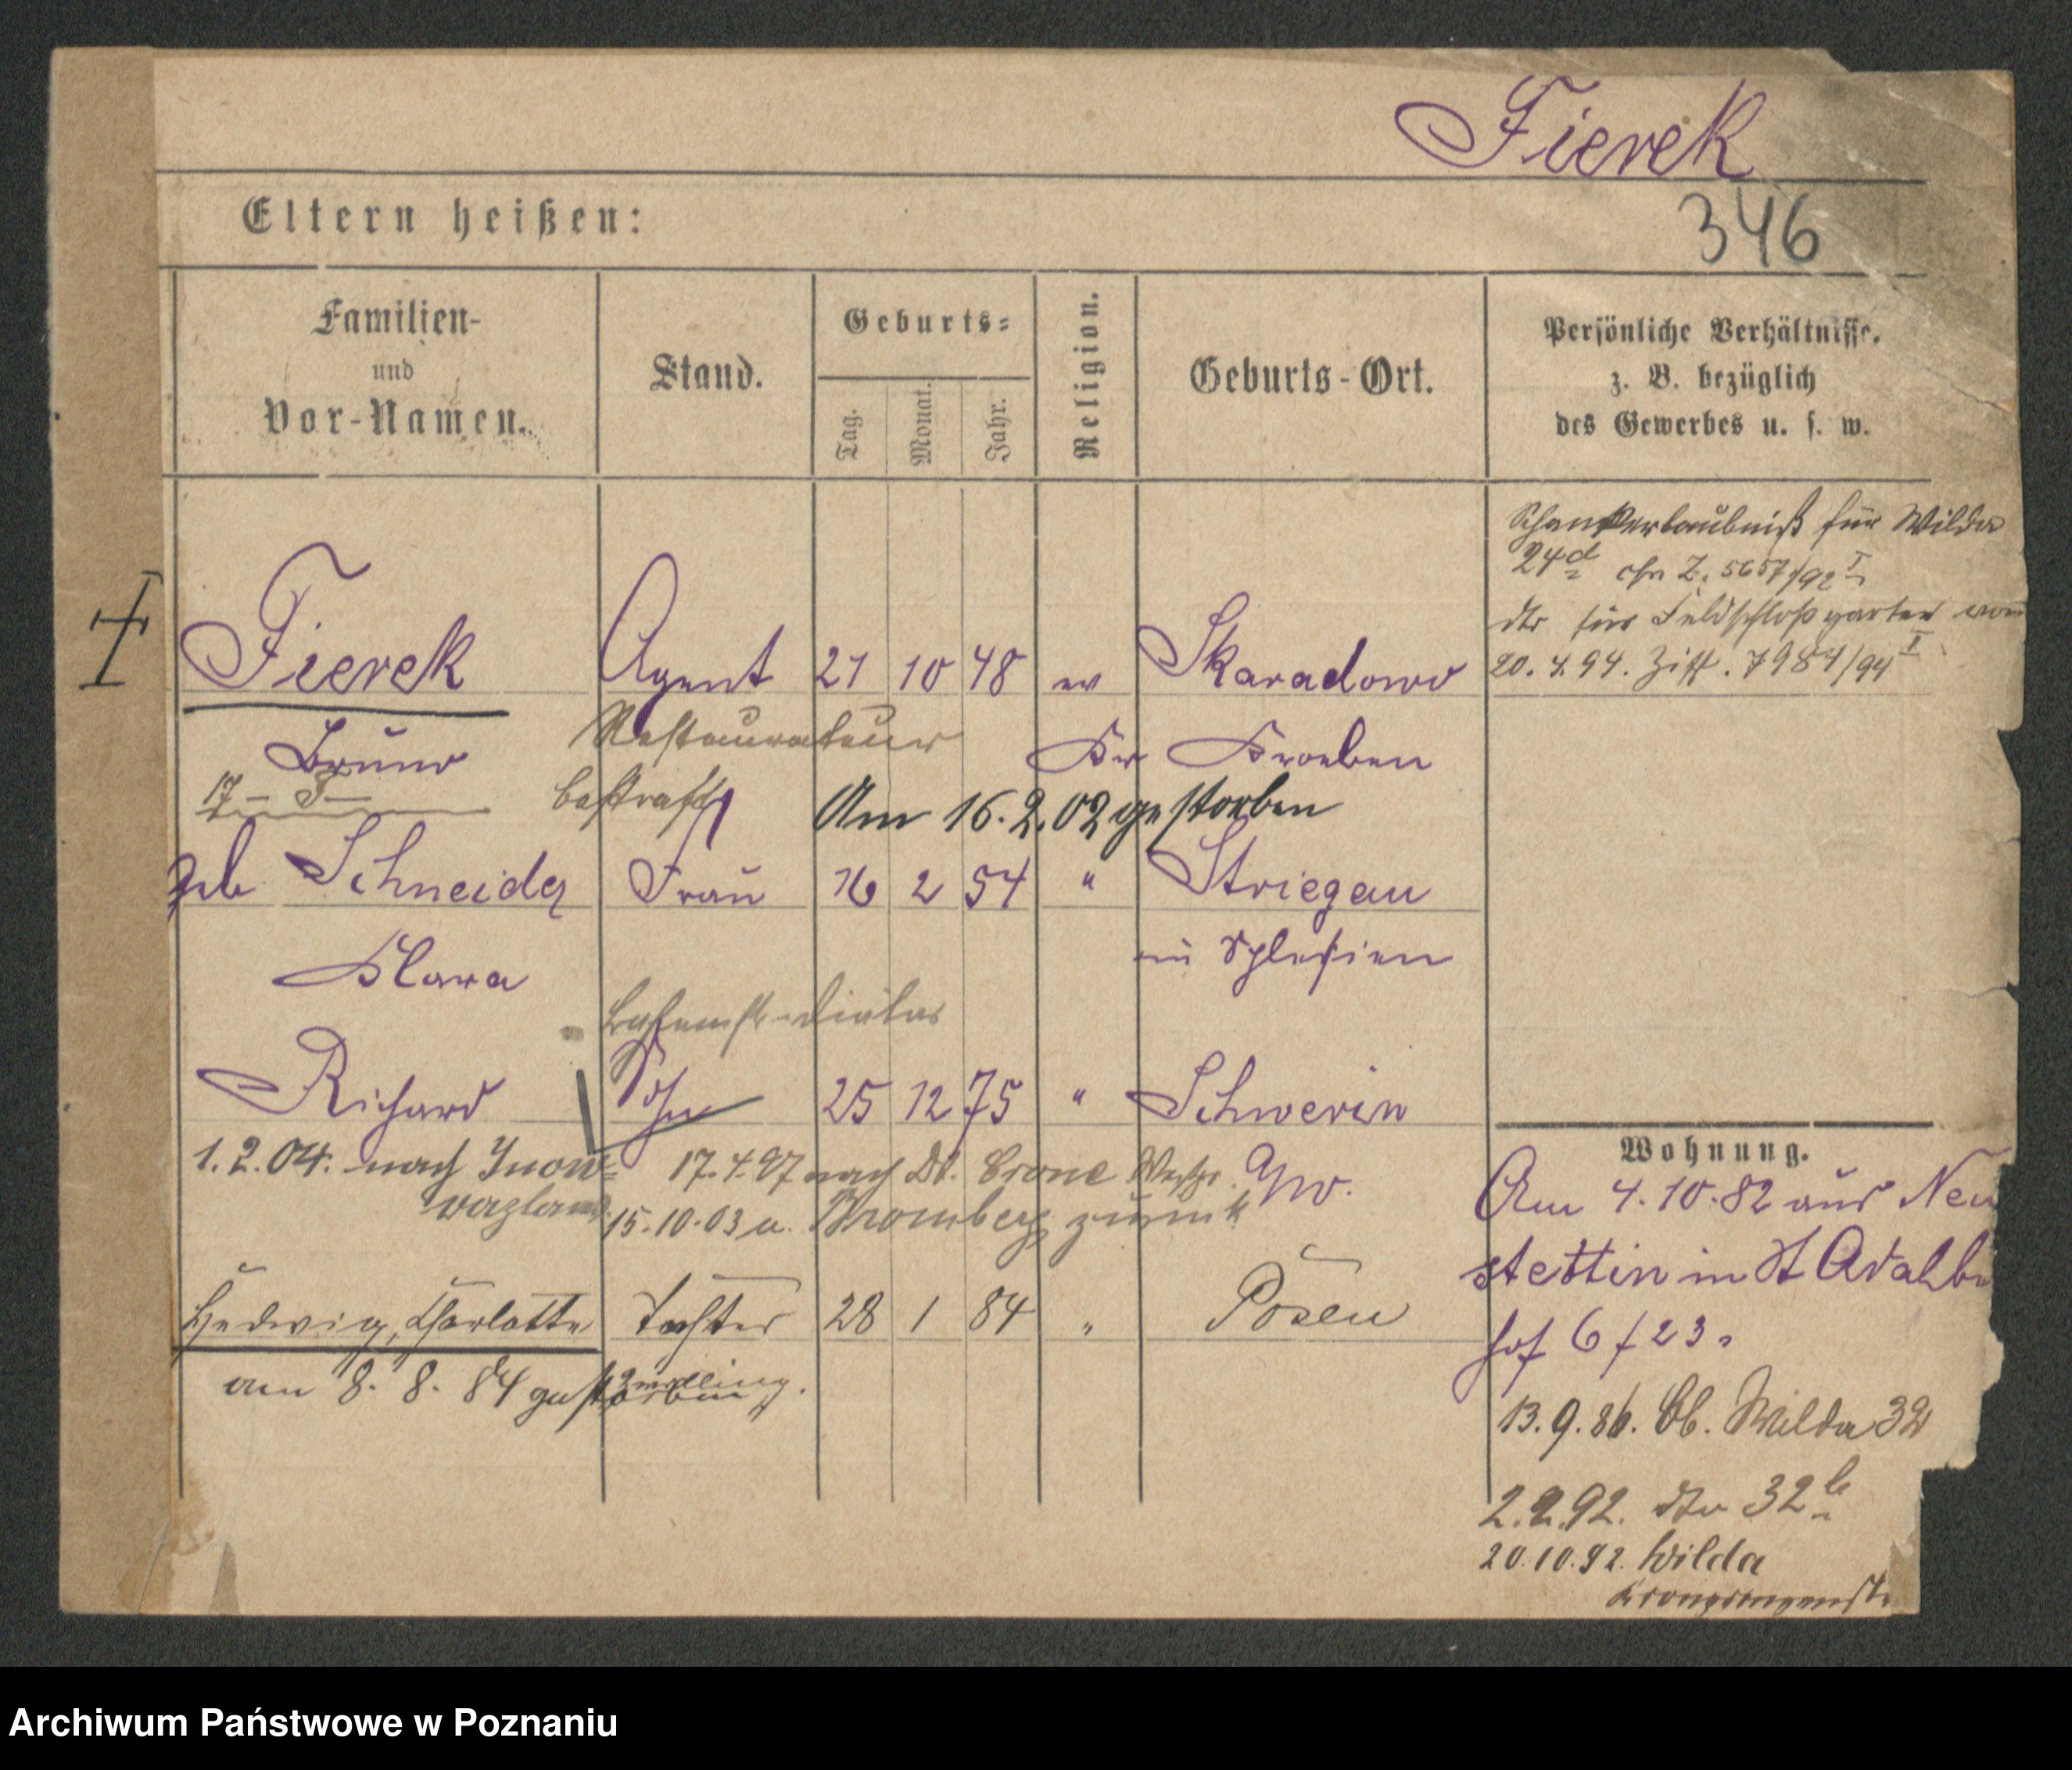 Fierek
346
Eltern heißen:
Familien-
und
Vor-Namen.
Stand.
Geburts-
Tag.
Monat.
Jahr.
Religion.
Geburts-Ort.
Persönliche Verhältnisse.
z. B. bezüglich
des Gewerbes u. s. w.
Schankerlaubniß für Wilda
24d Z. 5657/92 I
dto für Feldschloßgarten vom
20. 4. 94. Ziff. 7984/94 I
Fierek Agent 21 10 48 ev Skaradowo
Restaurateur
Bruno Kr Kroeben
bestraft
Am 16.2.02 gestorben
geb Schneider Frau 16 2 54 " Striegau
in Schlesien
Klara
Richard Sohn 25 12 75 " Schwerin
1.2.04. nach Inow-
17.4.97 nach Dt. Crone Westpr.
15.10.03 a. Bromberg zurück
Hedwig, Charlotte Tochter 28 1 84 " Posen
am 8. 8. 84 gestorben
Zwilling.
Wohnung.
Am 4.10.82 aus Neu
stettin in St Adalb
hof 6 / 23.
13.9.86. Ob. Wilda 32
2.2.92. dto 32 b
20.10.92. Wilda
Kronprinzenst
Archiwum Państwowe w Poznaniu